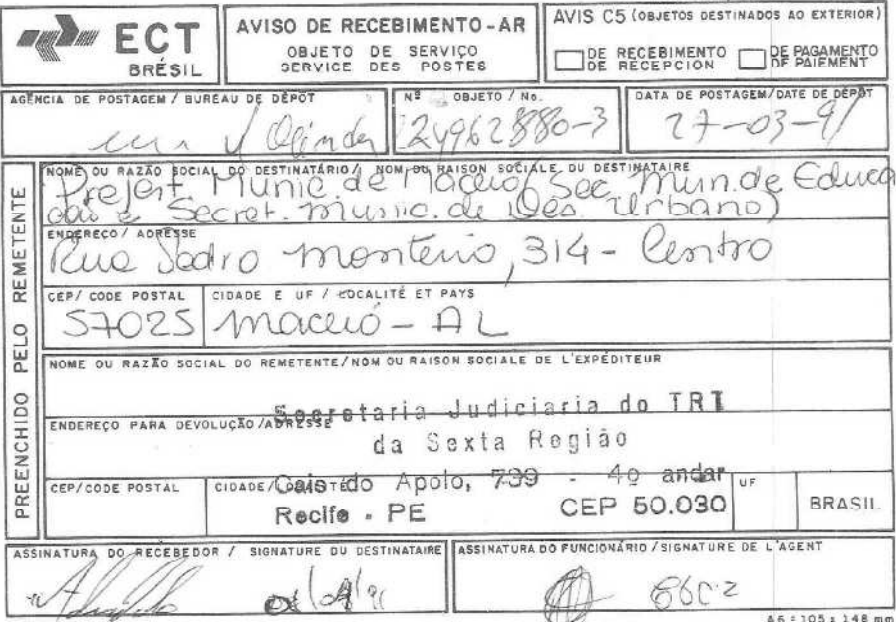 ECT
BRÉSIL
AVISO DE RECEBIMENTO - AR
OBJETO DE SERVIÇO
SERVICE DES POSTES
AVIS C5 (OBJETOS DESTINADOS AO EXTERIOR)
DE RECEBIMENTO
DE RECEPCION
DE PAGAMENTO
DE PAIEMENT
AGÊNCIA DE POSTAGEM / BUREAU DE DÉPÔT
Olinda
Nº OBJETO / No.
24962880-3
DATA DE POSTAGEM/DATE DE DÉPÔT
27-03-91
PREENCHIDO PELO REMETENTE
NOME OU RAZÃO SOCIAL DO DESTINATÁRIO / NOM OU RAISON SOCIALE DU DESTINATAIRE
Prefeit. Munic de Maceió (Sec. Mun. de Educa
ção e Secret. Munic. de Des Urbano)
ENDEREÇO / ADRESSE
Rua Pedro Monteiro, 314 - Centro
CEP/ CODE POSTAL
57025
CIDADE E UF / LOCALITÉ ET PAYS
Maceió - AL
NOME OU RAZÃO SOCIAL DO REMETENTE/NOM OU RAISON SOCIALE DE L'EXPÉDITEUR
Secretaria Judiciaria do TRT
ENDEREÇO PARA DEVOLUÇÃO/ADRESSE
da Sexta Região
CEP/CODE POSTAL
CIDADE/
Cais do Apolo, 739 - 4º andar
UF
Recife - PE CEP 50.030
BRASIL
ASSINATURA DO RECEBEDOR / SIGNATURE DU DESTINATAIRE
ASSINATURA DO FUNCIONÁRIO / SIGNATURE DE L'AGENT
A6 = 105 x 148 mm